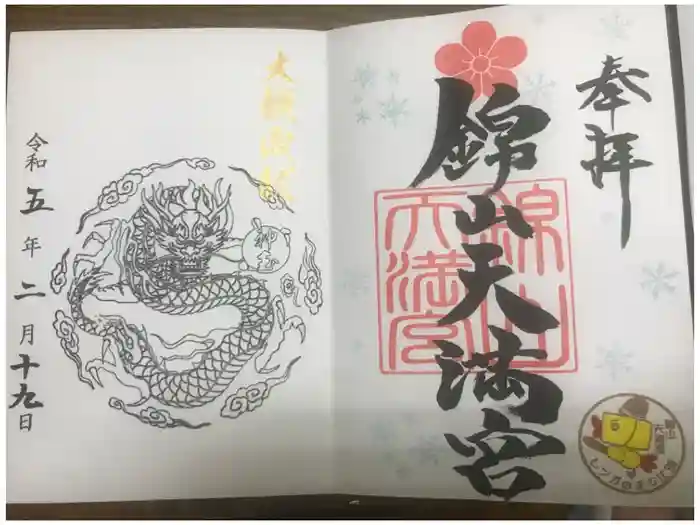 奉拝
錦山天満宮
錦山
天満宮
神玉
令和五年二月十九日